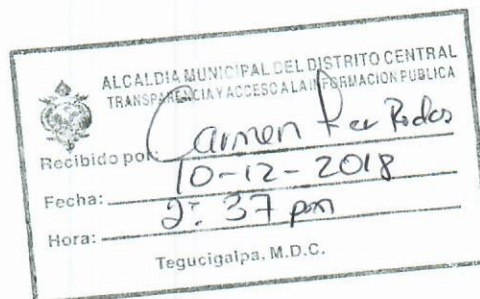 ALCALDIA MUNICIPAL DEL DISTRITO CENTRAL
TRANSPARENCIA Y ACCESO A LA INFORMACION PUBLICA
Recibido por: Carmen
Fecha: 10-12-2018
Hora: 2:37 pm
Tegucigalpa, M.D.C.